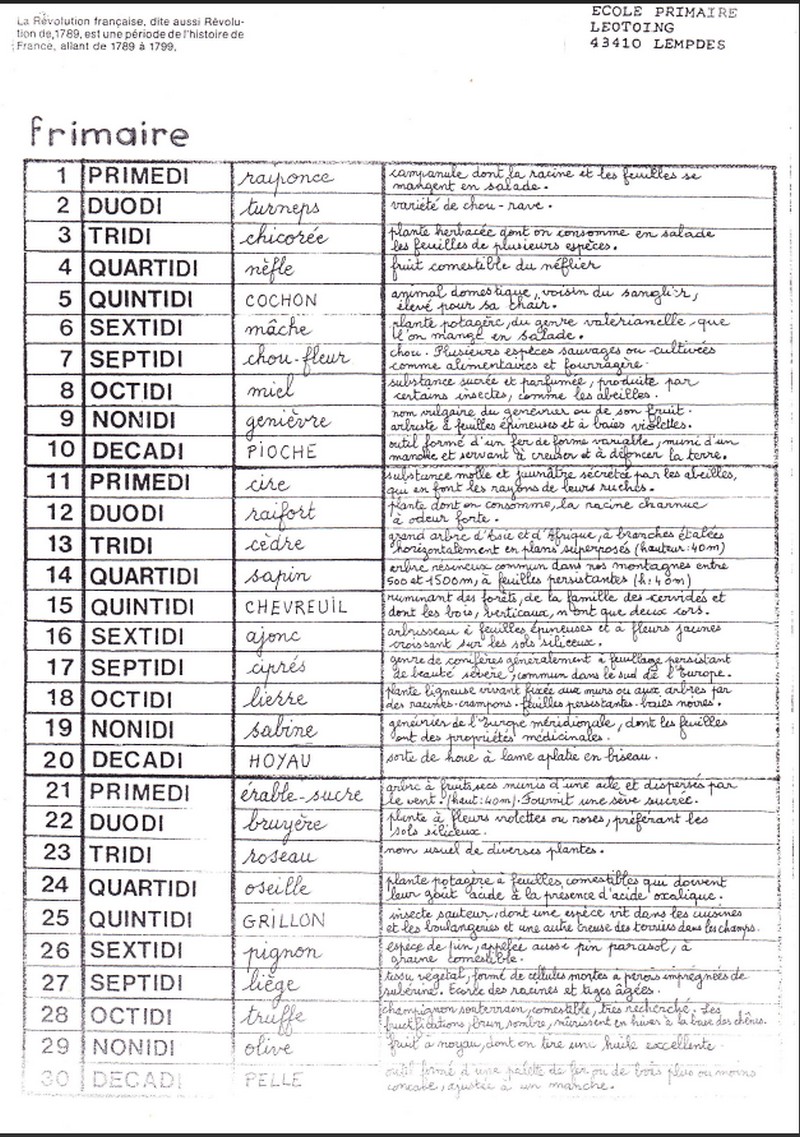 La Révolution française, dite aussi Révolu-
tion de 1789, est une période de l'histoire de
France, allant de 1789 à 1799,
ECOLE PRIMAIRE
LEOTOING
43410 LEMPDES
frimaire
1 PRIMEDI raiponce campanule dont la racine et les feuilles se
mangent en salade.
2 DUODI turneps variété de chou-rave.
3 TRIDI chicorée plante herbacée dont on consomme en salade
les feuilles de plusieurs espèces.
4 QUARTIDI nèfle fruit comestible du néflier
5 QUINTIDI COCHON animal domestique, voisin du sanglier,
élevé pour sa chair.
6 SEXTIDI mâche plante potagère, du genre valerianelle, que
l'on mange en salade.
7 SEPTIDI chou-fleur chou. Plusieurs espèces sauvages ou cultivées
comme alimentaires et fourragère.
8 OCTIDI miel substance sucrée et parfumée, produite par
certains insectes, comme les abeilles.
9 NONIDI genièvre nom vulgaire du genévrier ou de son fruit.
arbuste à feuilles épineuses et à baies violettes.
10 DECADI PIOCHE outil formé d'un fer de forme variable, muni d'un
manche et servant à creuser et à défoncer la terre.
11 PRIMEDI cire substance molle et jaunâtre sécrétée par les abeilles,
qui en font les rayons de leurs ruches.
12 DUODI raifort plante dont on consomme, la racine charnue
à odeur forte.
13 TRIDI cèdre grand arbre d'Asie et d'Afrique, à branches étalées
horizontalement en plans superposés (hauteur: 40m)
14 QUARTIDI sapin arbre résineux commun dans nos montagnes entre
500 et 1500m, à feuilles persistantes (h: 40m)
15 QUINTIDI CHEVREUIL ruminant des forêts, de la famille des cervidés et
dont les bois, verticaux, n'ont que deux cors.
16 SEXTIDI ajonc arbrisseau à feuilles épineuses et à fleurs jaunes
croissant sur les sols siliceux.
17 SEPTIDI ciprés genre de conifères généralement à feuillage persistant
de beauté sévère, commun dans le sud de l'Europe.
18 OCTIDI lierre plante ligneuse vivant fixée aux murs ou aux arbres par
des racines-crampons. feuilles persistantes-baies noires.
19 NONIDI sabine genévrier de l'Europe méridionale, dont les feuilles
ont des propriétés médicinales.
20 DECADI HOYAU sorte de houe à lame aplatie en biseau.
21 PRIMEDI érable-sucre arbre à fruits secs munis d'une aile et dispersés par
le vent. (haut: 40m). Fournit une sève sucrée.
22 DUODI bruyère plante à fleurs violettes ou roses, préférant les
sols siliceux.
23 TRIDI roseau nom usuel de diverses plantes.
24 QUARTIDI oseille plante potagère à feuilles comestibles qui doivent
leur goût acide à la présence d'acide oxalique.
25 QUINTIDI GRILLON insecte sauteur, dont une espèce vit dans les cuisines
et les boulangeries et une autre creuse des terriers dans les champs.
26 SEXTIDI pignon espèce de pin, appelée aussi pin parasol, à
graine comestible.
27 SEPTIDI liège tissu végétal, formé de cellules mortes à parois imprégnées de
subérine. Ecorce des racines et tiges âgées.
28 OCTIDI truffe champignon souterrain, comestible, très recherché. Les
fructifications, brun sombre, mûrissent en hiver à la base des chênes.
29 NONIDI olive fruit à noyau, dont on tire une huile excellente
30 DECADI PELLE outil formé d'une palette de fer ou de bois plus ou moins
concave, ajustée à un manche.